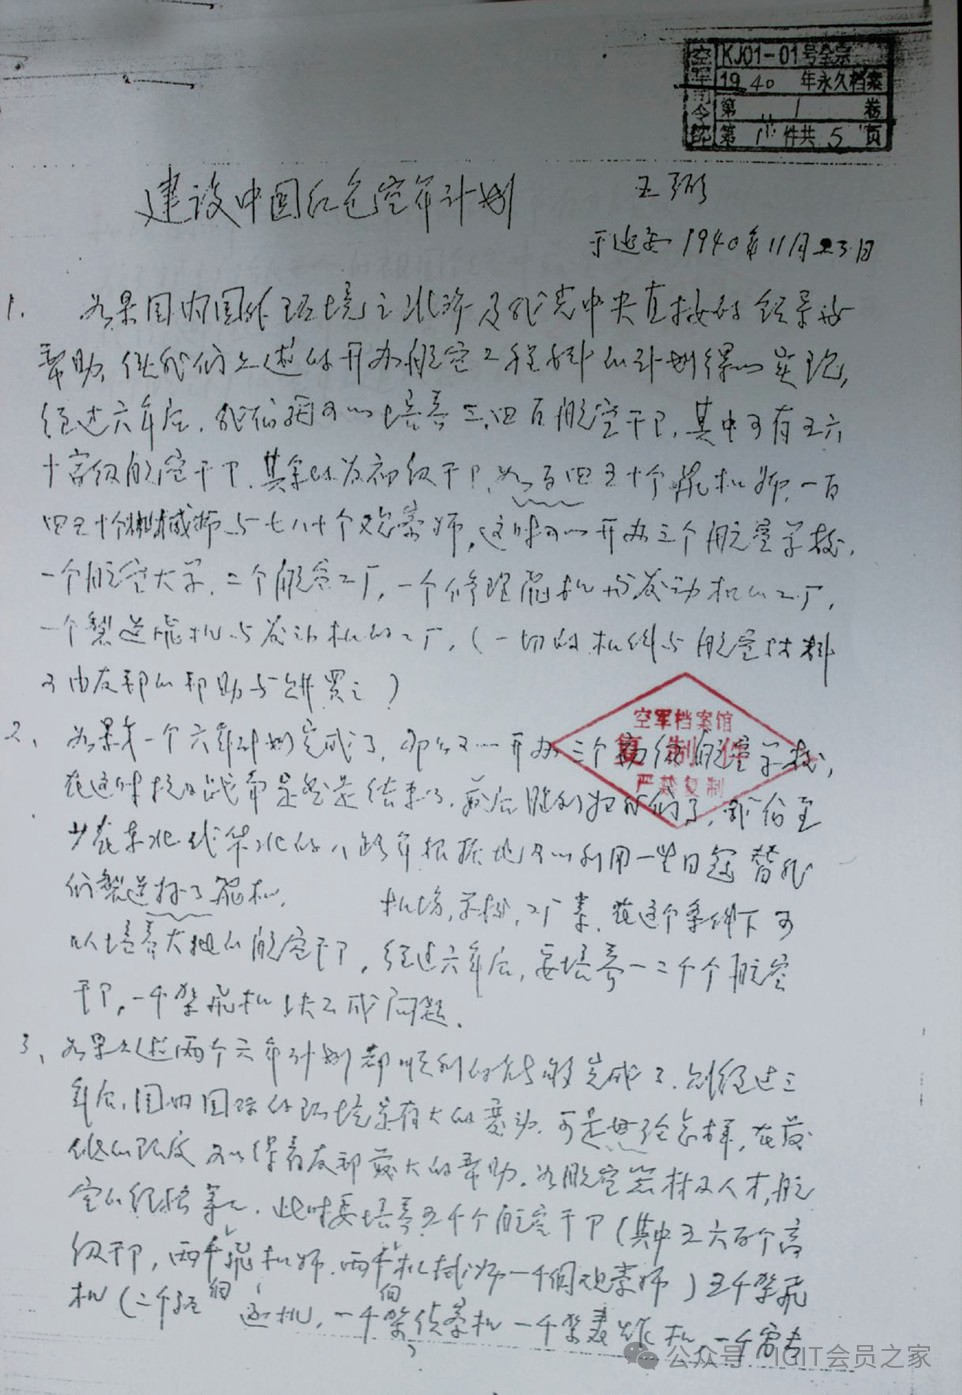 空军司令部
KJ01-01号全宗
1940 年永久档案
第 1 卷
第 1 件共 5 页
建设中国红色空军计划
王弼
于延安 1940年11月23日
1. 如果国内国外环境之北许及我党中央直接的领导与
帮助,使我们上述的开办航空工程科的计划得以实现,
经过六年后,我们可以培养三、四百航空干卩,其中可有五六
十高级航空干卩,其余为初级干卩,如百四五十个飞机师,一百
四五十个机械师与七八十个观察师,这时可以开办三个航空学校,
一个航空大学,二个航空工厂,一个修理飞机与发动机的工厂,
一个製造飞机与发动机的工厂,(一切的机件与航空材料
可由友邦的帮助与购买之)
2、如果第一个六年计划完成了,那么可以开办三个初级航空学校,
在这时抗日战争是然是结束了,最后胜利归我们了,我们至
少在东北或华北的八路军根据地可以利用一些日寇替我
们製造好了飞机,机场,学校,工厂等,在这个条件下可
以培养大批的航空干卩,经过六年后,要培养一二千个航空
干卩,一千架飞机是不成问题.
3、如果上述两个六年计划都顺利的能够完成了,则经过三
年后,国内国际的环境是有大的变动,可是无论怎样,在最
低的限度可以得着友邦最大的帮助,如航空器材及人才,航
空的组织等等,此时要培养五千个航空干卩(其中五六百个高
级干卩,两千飞机师,两千机械师一千個观察师)五千架飞
机(二千架 驱逐机,一千架侦察机一千架轰炸机,一千
空军档案馆
复制件
严禁复制
公众号·IGIT会员之家